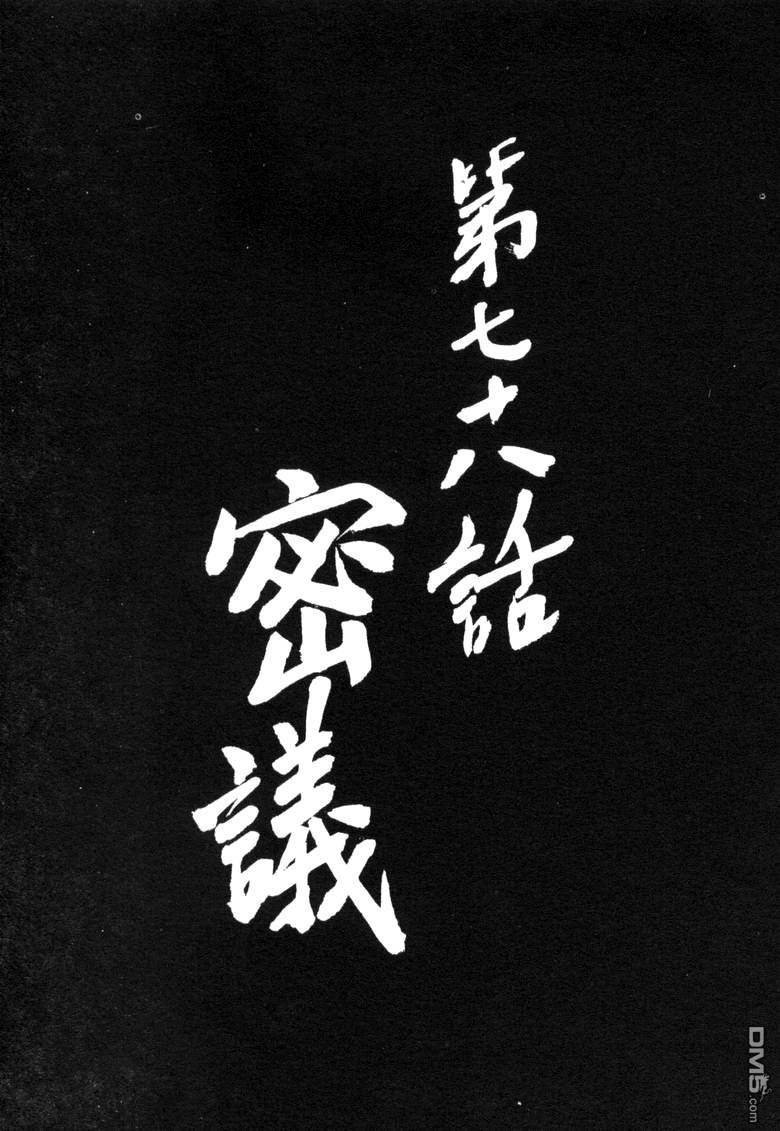 第七十八話
密議
DM5.com